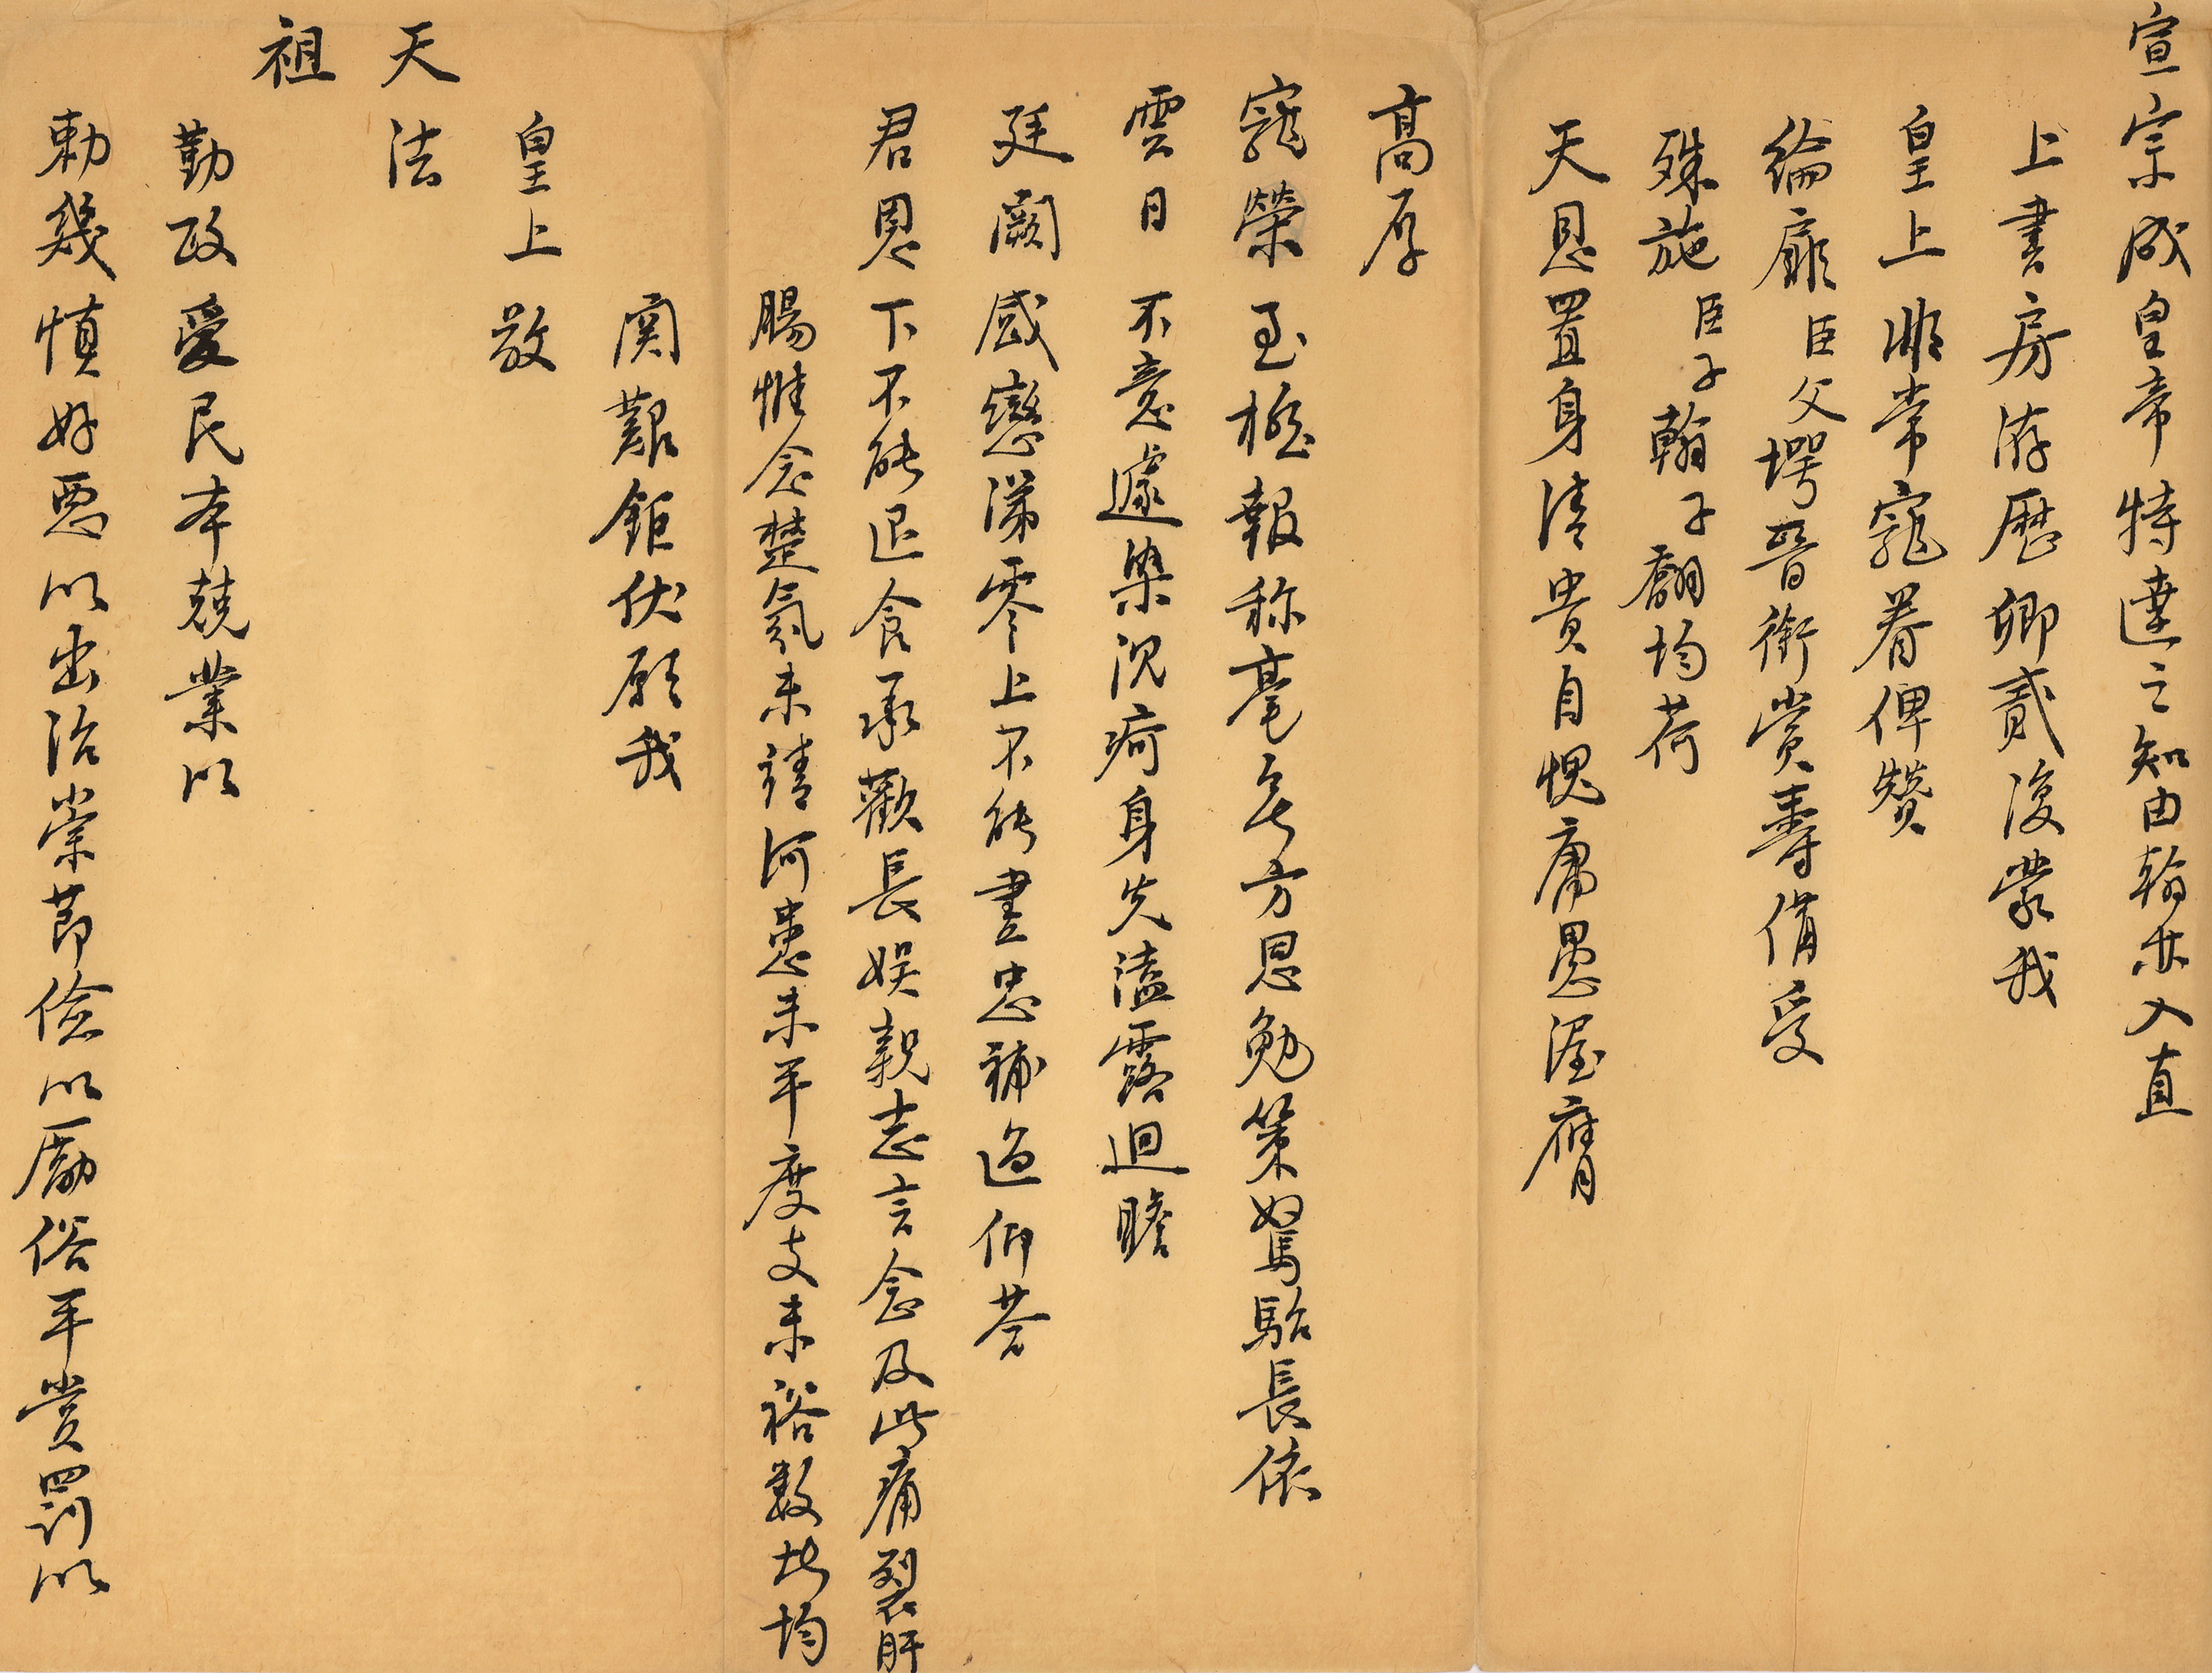 宣宗成皇帝特達之知由翰林入直
上書房游歷卿貳復蒙我
皇上非常寵眷俾贊
綸扉臣父堮晉銜賞壽備受
殊施臣子翰子翻均荷
天恩置身清貴自愧庸愚渥膺
高厚
寵榮至極報稱毫無方思勉策駑駘長依
雲日不意遽染沉疴身先溘露迴瞻
廷闕感戀涕零上不能盡忠補過仰荅
君恩下不能退食承歡長娛親志言念及此痛裂肝
腸惟念楚氛未靖河患未平度支未裕數者均
関艱鉅伏願我
皇上敬
天法
祖
勤政愛民本兢業以
勅幾慎好惡以出治崇節儉以勵俗平賞罰以